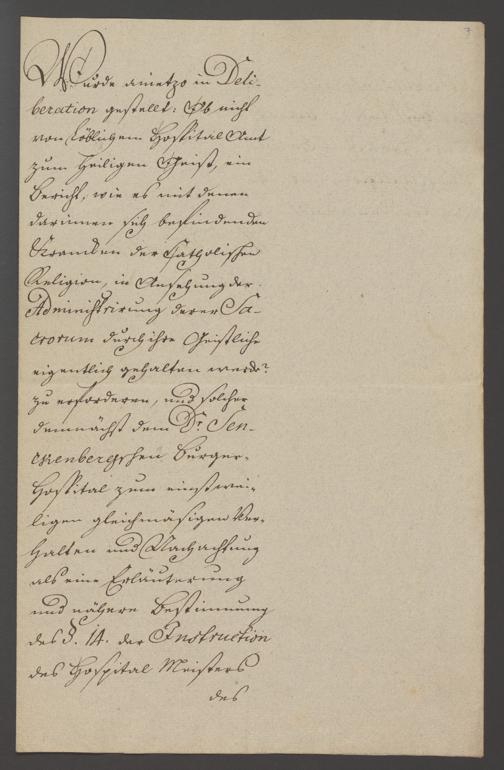 7
Wurde anietzo in Deli-
beration gestellt: Ob nicht
von Löblichem Hospital Amt
zum Heiligen Geist, ein
Bericht, wie es mit denen
darinnen sich befindenden
Krancken der Catholischen
Religion, in Ansehung der
Administrirung derer Sa-
crorum durch ihre Geistliche
eigentlich gehalten werde?
zu erforderen, und solcher
demnächst dem Dr. Sen-
ckenbergschen Burger-
Hospital zum einstwei-
ligen gleichmäsigen Ver-
halten und Nachachtung
als eine Erläuterung
und nähere Bestimmung
des §. 14. der Instruction
des Hospital Meisters
des